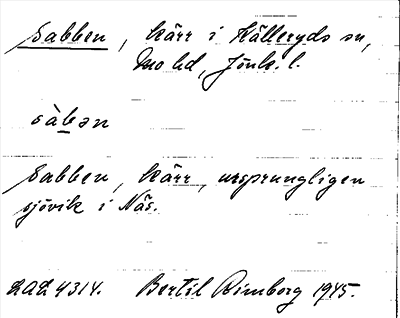 Sabben, kärr i Källeryds sn,
Mo hd, Jönk. l.
sàbən
Sabben, kärr, ursprungligen
sjövik i Näs.
LAL 4314. Bertil Rimborg 1945.